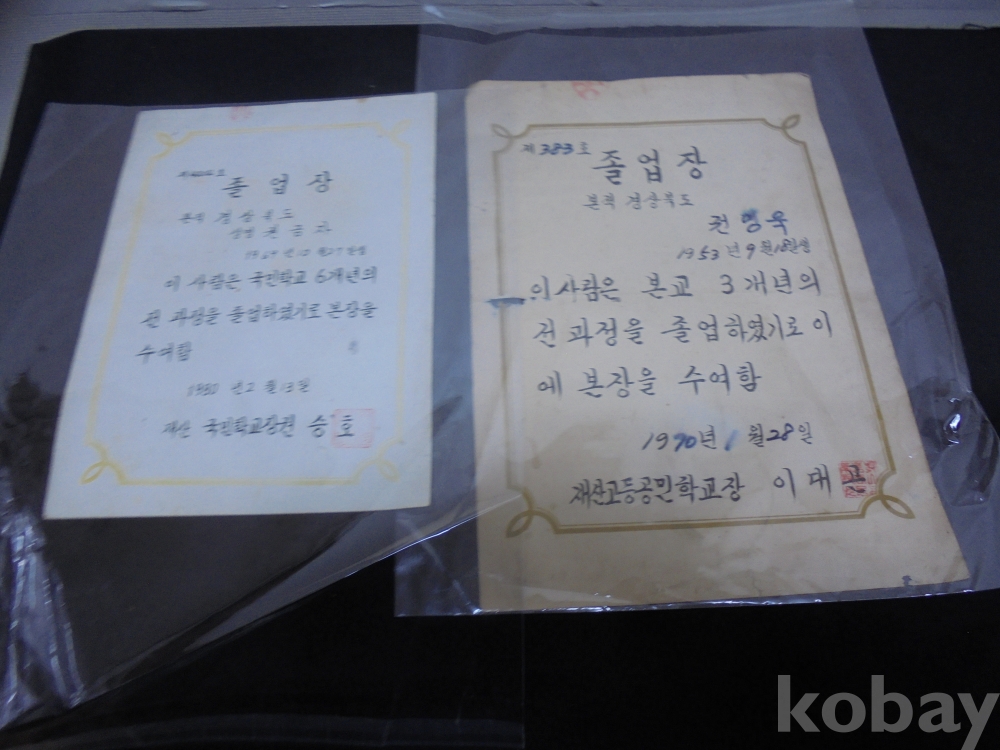 졸업장
본적 경상북도
성명 권금자
이 사람은 국민학교 6개년의
전 과정을 졸업하였기로 본장을
수여함
년 2월 13일
재산 국민학교장 권승호
제383호
졸업장
본적 경상북도
권영욱
1953년 9월 18일생
이 사람은 본교 3개년의
전과정을 졸업하였기로 이
에 본장을 수여함
1970년 1월 28일
재산고등공민학교장 이대
kobay